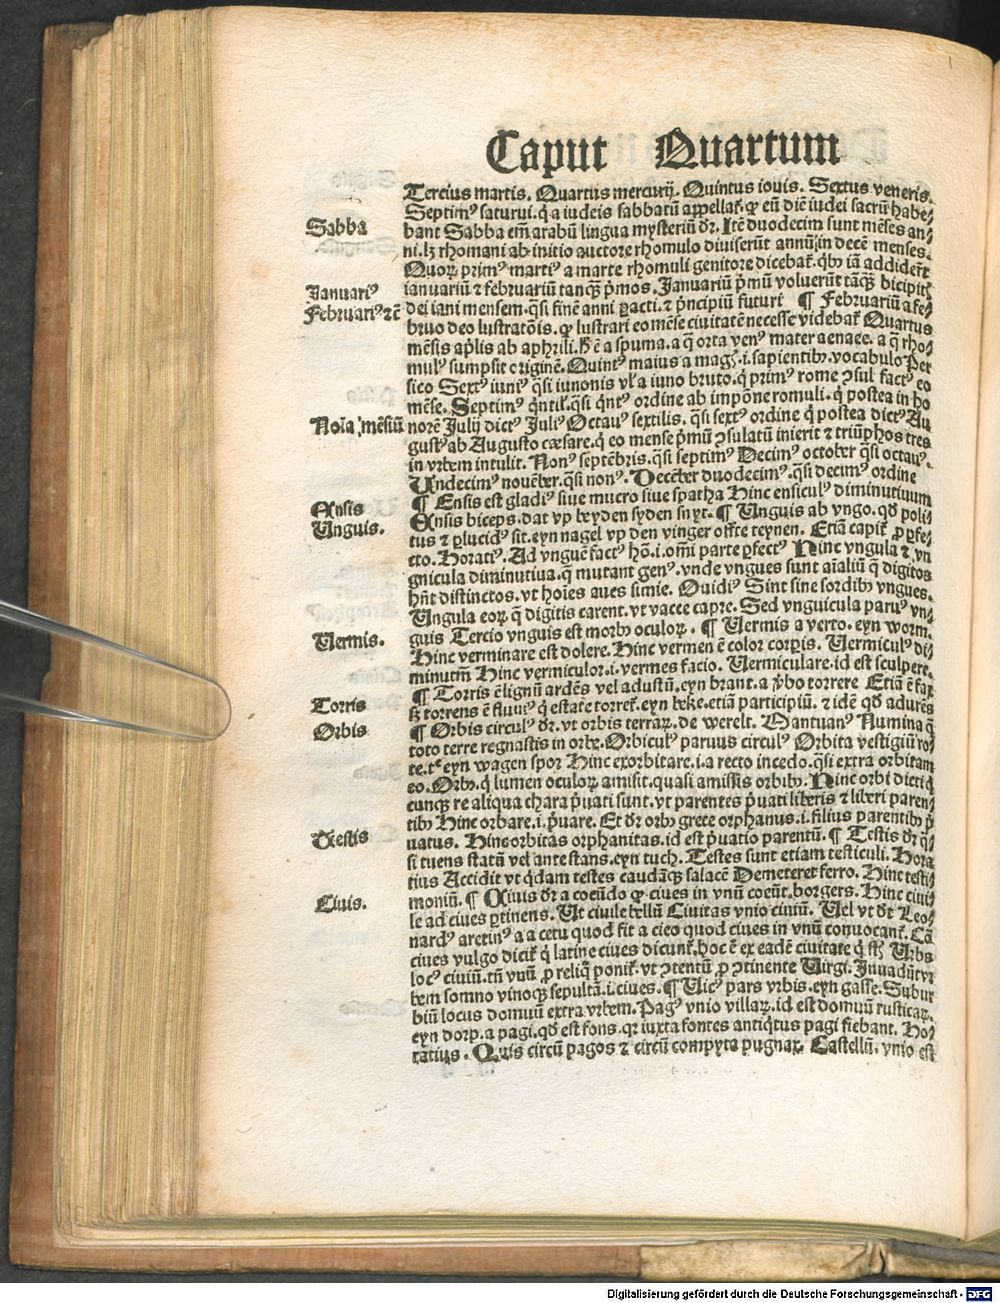 Caput Quartum
Tercius martis. Quartus mercurij. Quintus iouis. Sextus veneris.
Septimꝰ saturui. q̇ a iudeis sabbatū appellat̄. qꝫ eū diē iudei sacrū habe⸗
Sabba
bant Sabba em̄ arabū lingua mysteriū dr̄. Itē duodecim sunt mēses an⸗
ni. lꝫ rhomani ab initio auctore rhomulo diuiserūt annū in decē menses.
Quoꝝ primꝰ martiꝰ a marte rhomuli genitore dicebat̄. qḃꝫ iā addider̄t
Januariꝰ
ianuariū ⁊ februariū tanqꝫ p̄mos. Januariū p̄mū voluerūt tāqꝫ bicipitꝭ
Februariꝰ ⁊c̄
dei iani mensem. qͣsi finē anni ꝑacti. ⁊ p̄ncipiū futuri ¶ Februariū a fe⸗
bruo deo lustratōis. qꝫ lustrari eo mēse ciuitatē necesse videbat̄ Quartus
mēsis ap̄lis ab aphrili. hͦ ē a spuma. a q̄ orta venꝰ mater aenaee. a q̄ rho⸗
mulꝰ sumpsit originē. Quintꝰ maius a magꝭ. i. sapientibꝫ. vocabulo Per
sico Sextꝰ iuniꝰ qͣsi iunonis vl̄ a iuno bruto. q̇ primꝰ rome ꝯsul factꝰ eo
mēse. Septimꝰ q̇ntilꝭ. qͣsi q̇ntꝰ ordine ab impōne romuli. q̇ postea in ho
Noīa mēsiū
norē Julij dictꝰ Juliꝰ Octauꝰ sextilis. qͣsi sextꝰ ordine q̇ postea dictꝰ Au
gustꝰ ab Augusto cæsare. q̇ eo mense p̄mū ꝯsulatū inierit ⁊ triūphos tres
in vrbem intulit. Nonꝰ septēbris. qͣsi septimꝰ Decimꝰ october qͣsi octauꝰ.
Undecimꝰ nouēber. qͣsi nonꝰ. Decēber duodecimꝰ. qͣsi decimꝰ ordine
¶ Ensis est gladiꝰ siue mucro siue spatha Hinc ensiculꝰ diminutiuum
Ansis
Ansis biceps. dat vp beyden syden snyt. ¶ Unguis ab vngo. qd̄ poli⸗
Unguis.
tus ⁊ ꝑlucidꝰ sit. eyn nagel vp den vinger offte teynen. Etiā capit̄ ꝓ ꝑfe⸗
cto. Horatiꝰ. Ad vnguē factꝰ hō. i. om̄i parte ꝑfectꝰ Hinc vngula ⁊ vn
gnicula diminutiua. q̄ mutant genꝰ. vnde vngues sunt aīaliū q̄ digitos
hn̄t distinctos. vt hoīes aues simie. Ouidiꝰ Sint sine sordibꝫ vngues.
Ungula eoꝝ q̄ digitis carent. vt vacce capre. Sed vnguicula paruꝰ vn⸗
guis Tercio vnguis est morbꝫ oculoꝝ. ¶ Vermis a verto. eyn worm.
Vermis.
Hinc verminare est dolere. Hinc vermen ē color corꝑis. Vermiculꝰ di⸗
minutm̄ Hinc vermiculor. i. vermes facio. Vermiculare. id est sculpere.
¶ Torris ē lignū ardēs vel adustū. eyn brant. a ṽbo torrere Etiā ē fax
Torris
sꝫ torrens ē fluuiꝰ q̇ estate torret̄. eyn beke. etiā participiū. ⁊ idē qd̄ adurēs
Orbis
¶ Orbis circulꝰ dr̄. vt orbis terraꝝ. de werelt. Mantuanꝰ Numina q̄
toto terre regnastis in orbe. Orbiculꝰ paruus circulꝰ Orbita vestigiū ro⸗
te. t͛ eyn wagen spor Hinc exorbitare. i. a recto incedo. qͣsi extra orbitam
eo. Orbꝫ. q̇ lumen oculoꝝ amisit. quasi amissis orbibꝫ. Hinc orbi dicti q̇
cunqꝫ re aliqua chara p̄uati sunt. vt parentes p̄uati liberis ⁊ liberi paren⸗
tibꝫ Hinc orbare. i. p̄uare. Et dr̄ orbꝫ grece orphanus. i. filius parentibꝫ p̄
uatus. Hinc orbitas orphanitas. id est p̄uatio parentū. ¶ Testis dr̄ q̇⸗
Testis
si tuens statū vel ante stans. eyn tuch. Testes sunt etiam testiculi. Hora
tius Accidit vt q̇dam testes caudāqꝫ salacē Demeteret ferro. Hinc testi⸗
moniū. ¶ Ciuis dr̄ a coeūdo qꝫ ciues in vnū coeūt. borgers. Hinc ciui⸗
Ciuis.
le ad ciues ꝑtinens. Ut ciuile bellū Ciuitas vnio ciuiū. Uel vt dt̄ Leo⸗
nardꝰ aretinꝰ a a cetu quod fit a cieo quod ciues in vnū conuocant̄. Cā
ciues vulgo dicit̄ q̇ latine ciues dicunt̄. hoc ē ex eadē ciuitate q̇ sꝫ Urbs
locꝰ ciuiū. tn̄ vnū ꝓ reliq̇ ponit̄. vt ꝯtentū ꝓ ꝯtinente Virgi. Inuadūt vr
bem somno vinoqꝫ sepultā. i. ciues. ¶ Uicꝰ pars vrbis. eyn gasse. Subur
biū locus domuū extra vrbem. Pagꝰ vnio villaꝝ. id est domuū rusticaꝝ.
eyn dorp. a pagi. qd̄ est fons. qꝛ iuxta fontes antiq̇tus pagi fiebant. Ho⸗
ratius. Quis circū pagos ⁊ circū compyta pugnax. Castellū. vnio est
Digitalisierung gefördert durch die Deutsche Forschungsgemeinschaft - DFG